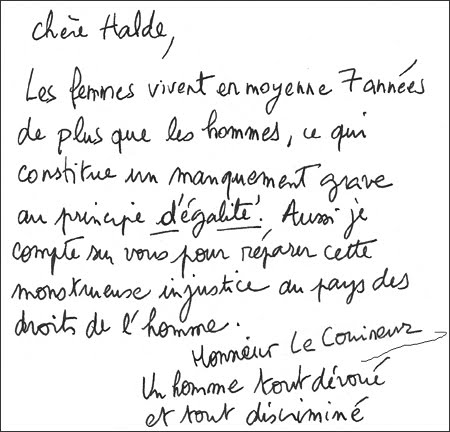 Chère Halde,
Les femmes vivent en moyenne 7 années
de plus que les hommes, ce qui
constitue un manquement grave
au principe d'égalité. Aussi je
compte sur vous pour réparer cette
monstrueuse injustice au pays des
droits de l'homme.
Monsieur Le
Un homme tout dévoué
et tout discriminé